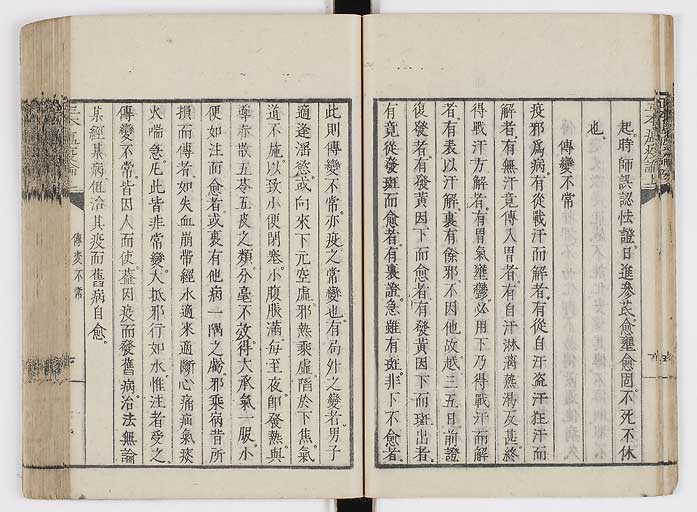 起。時師誤認怯證。日進參芪。愈壅愈固。不死不休
也。
傳變不常
疫邪爲病。有從戰汗而解者。有從自汗盜汗狂汗而
解者。有無汗竟傳入胃者。有自汗淋漓熱渴反甚。終
得戰汗方解者。有胃氣壅鬱。必用下乃得戰汗而解
者。有表以汗解。裏有餘邪。不因他故。越三五日前證
復發者。有發黃因下而愈者。有發黃因下而斑出者。
有竟從發斑而愈者。有裏證急。雖有斑。非下不愈者。
此則傳變不常。亦疫之常變也。有局外之變者。男子
適逢淫慾。或向來下元空虛。邪熱乘虛陷於下焦。氣
道不施。以致小便閉塞。小腹脹滿。每至夜。即發熱。與
導赤散五苓五皮之類。分毫不效。得大承氣一服。小
便如注而愈者。或裏有他病。一隅之虧。邪乘宿昔所
損而傳者。如失血崩帶。經水適來適斷。心痛疝氣。痰
火喘急。凡此皆非常變。大抵邪行如水。惟注者受之。
傳變不常。皆因人而使。蓋因疫而發舊病。治法無論
某經某病。但治其疫。而舊病自愈。
傳変不常